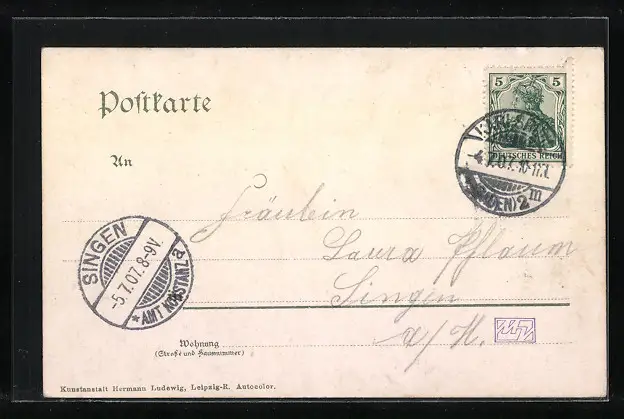 Postkarte
5 5
DEUTSCHES REICH
An
(BADEN) 2 m
Fräulein
Laura Pflaum
Singen
a/H.
SINGEN
-5.7.07.8-9V.
*AMT KONSTANZ
Wohnung
(Straße und Hausnummer)
Kunstanstalt Hermann Ludewig, Leipzig-R. Autocolor.